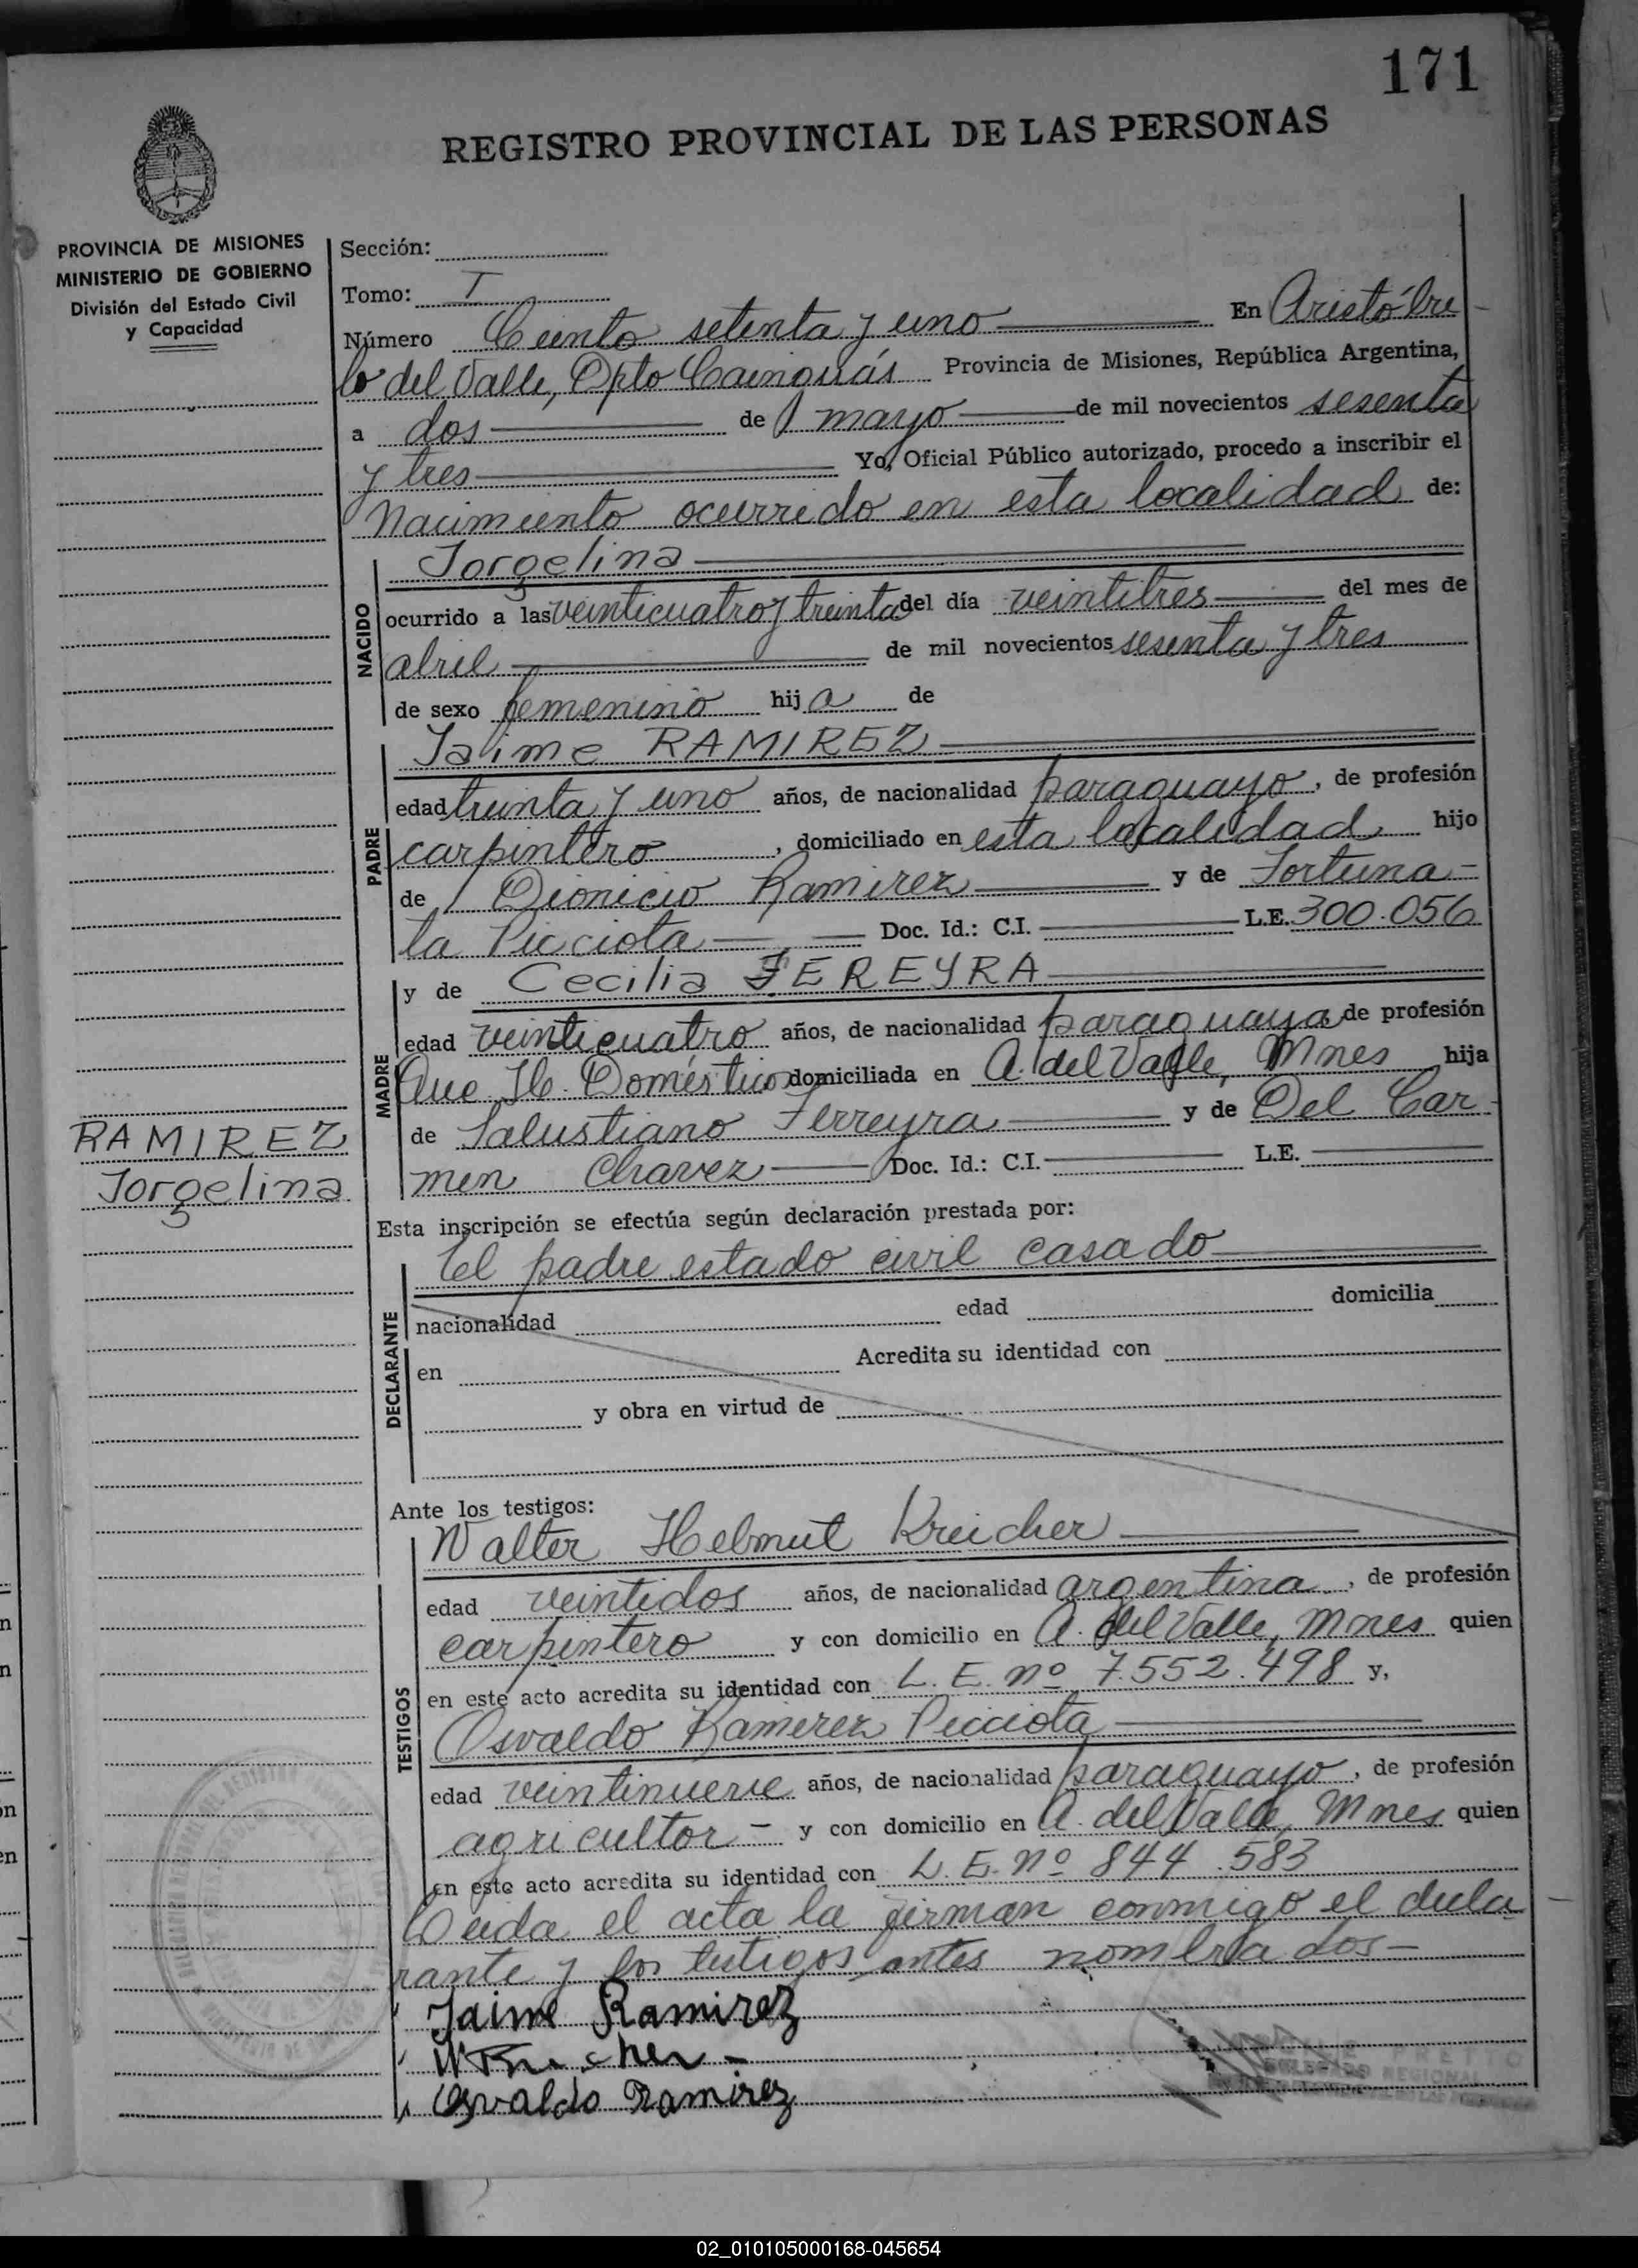 171
REGISTRO PROVINCIAL DE LAS PERSONAS
PROVINCIA DE MISIONES
MINISTERIO DE GOBIERNO
División del Estado Civil
y Capacidad
Sección:
Tomo: I
Número Ciento setenta y uno En Aristóbu
lo del Valle, Dpto Cainguás Provincia de Misiones, República Argentina,
a dos de mayo de mil novecientos sesenta
y tres Yo, Oficial Público autorizado, procedo a inscribir el
Nacimiento ocurrido en esta localidad de:
NACIDO
Jorgelina
ocurrido a las veinticuatro y treinta del día veintitres del mes de
abril de mil novecientos sesenta y tres
de sexo femenino hija de
PADRE
Jaime RAMIREZ
edad treinta y uno años, de nacionalidad paraguayo, de profesión
carpintero, domiciliado en esta localidad hijo
de Dionicio Ramirez y de Fortuna-
ta Picciota Doc. Id.: C.I. L.E. 300.056
MADRE
y de Cecilia FEREYRA
edad veinticuatro años, de nacionalidad paraguaya de profesión
Que Hc. Domésticos domiciliada en A. del Valle, Mnes hija
de Salustiano Ferreyra y de Del Car-
men Chavez Doc. Id.: C.I. L.E.
RAMIREZ
Jorgelina
Esta inscripción se efectúa según declaración prestada por:
DECLARANTE
El padre estado civil casado
nacionalidad edad domicilia
en Acredita su identidad con
y obra en virtud de
Ante los testigos:
TESTIGOS
Walter Helmut Kreicher
edad veintidos años, de nacionalidad argentina, de profesión
carpintero y con domicilio en A. del Valle, Mnes quien
en este acto acredita su identidad con L. E. nº 7.552.498 y,
Osvaldo Ramirez Picciota
edad veintinueve años, de nacionalidad paraguayo, de profesión
agricultor - y con domicilio en A. del Valle, Mnes quien
en este acto acredita su identidad con L. E. nº 844.583
Leida el acta la firman conmigo el decla
rante y los testigos antes nombrados-
Jaime Ramirez
Osvaldo Ramirez
DELEGADO REGIONAL
02_010105000168-045654